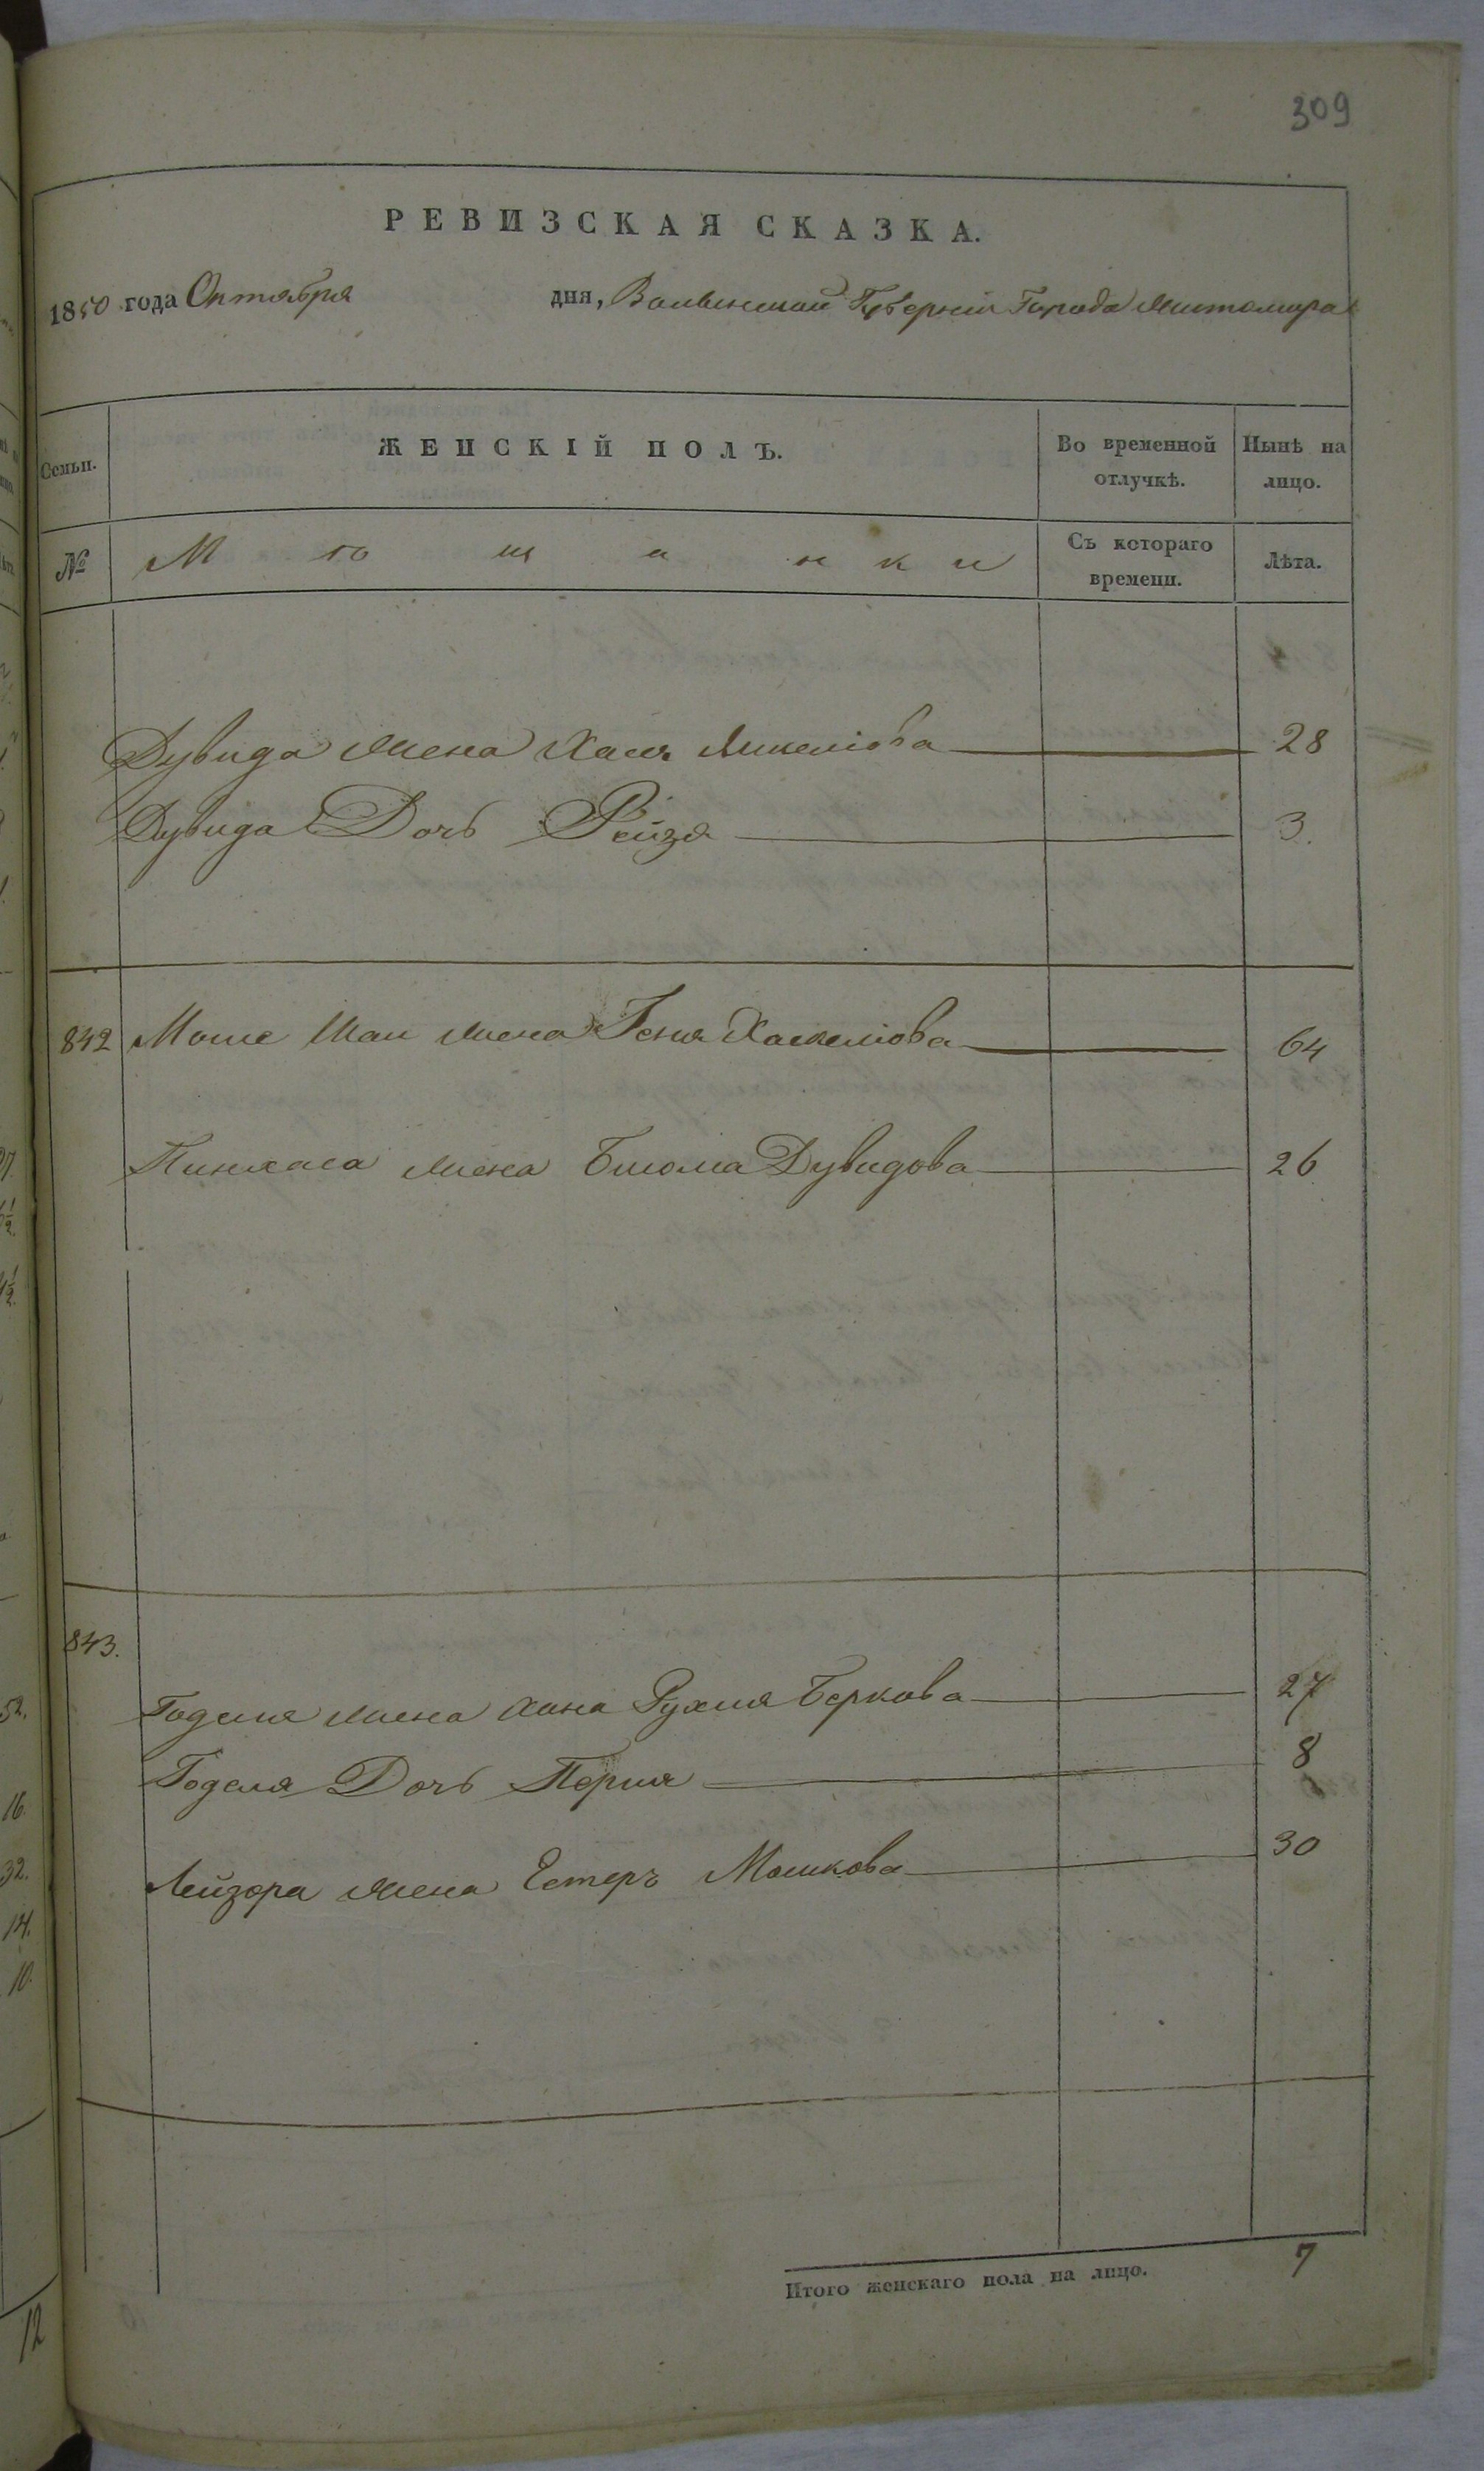 309
РЕВИЗСКАЯ СКАЗКА.
1850 года Октября дня, Волынской Губерніи Города Житомира
Семьи. ЖЕНСКІЙ ПОЛЪ. Во временной отлучкѣ. Нынѣ на лицо.
№ Мѣщанки Съ котораго времени. Лѣта.
Дувида жена Хася 28
Дувида Дочь Рейзя 3.
842 Мошe жена Геня Хаскеліова 64
Пинхаса жена Блюма Дувидова 26
843.
Годеля жена Хана Рухля Беркова 27
Годеля Дочь Перля 8
Лейзора жена Естеръ Мошкова 30
Итого женскаго пола на лицо. 7
52.
16.
32.
14.
10.
12